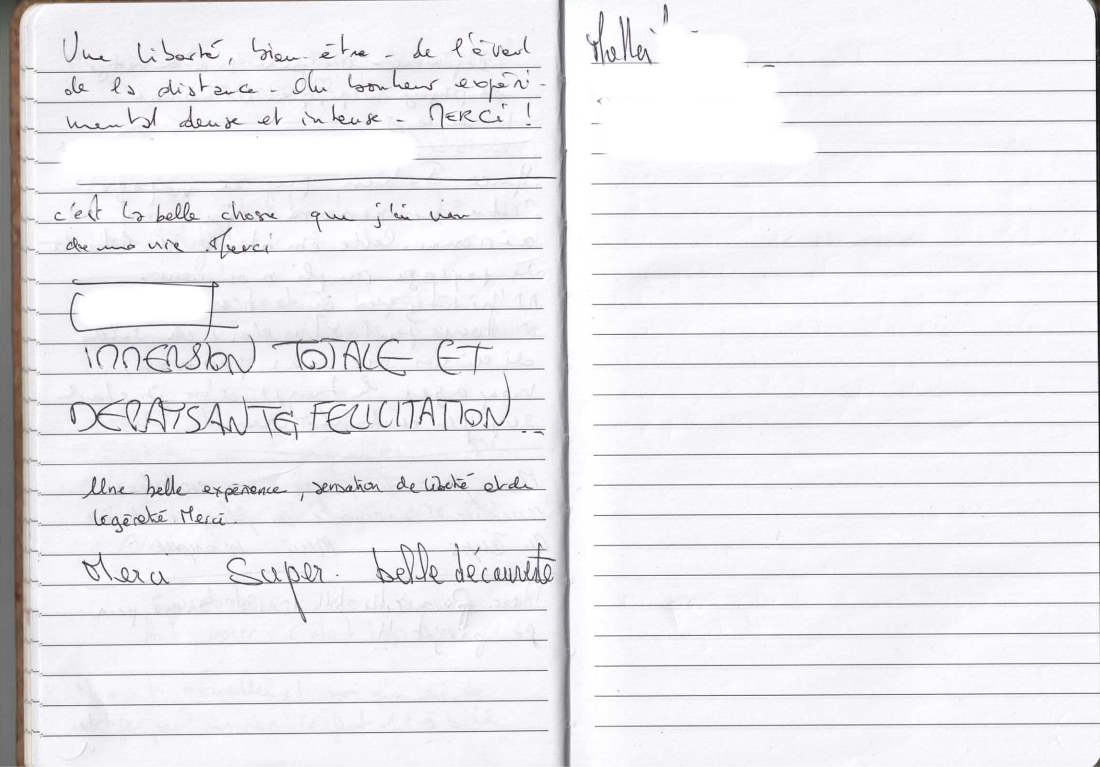 Une liberté, bien-être - de l'éveil
de la distance - Du bonheur expéri-
mental dense et intense - MERCi !
c'est la belle chose que j'ai
de ma vie Merci
IMMERSION TOTALE ET
DEPAYSANTE, FELICITATION ...
Une belle expérience, sensation de liberté et de
légèreté Merci.
Merci Super. belle découverte